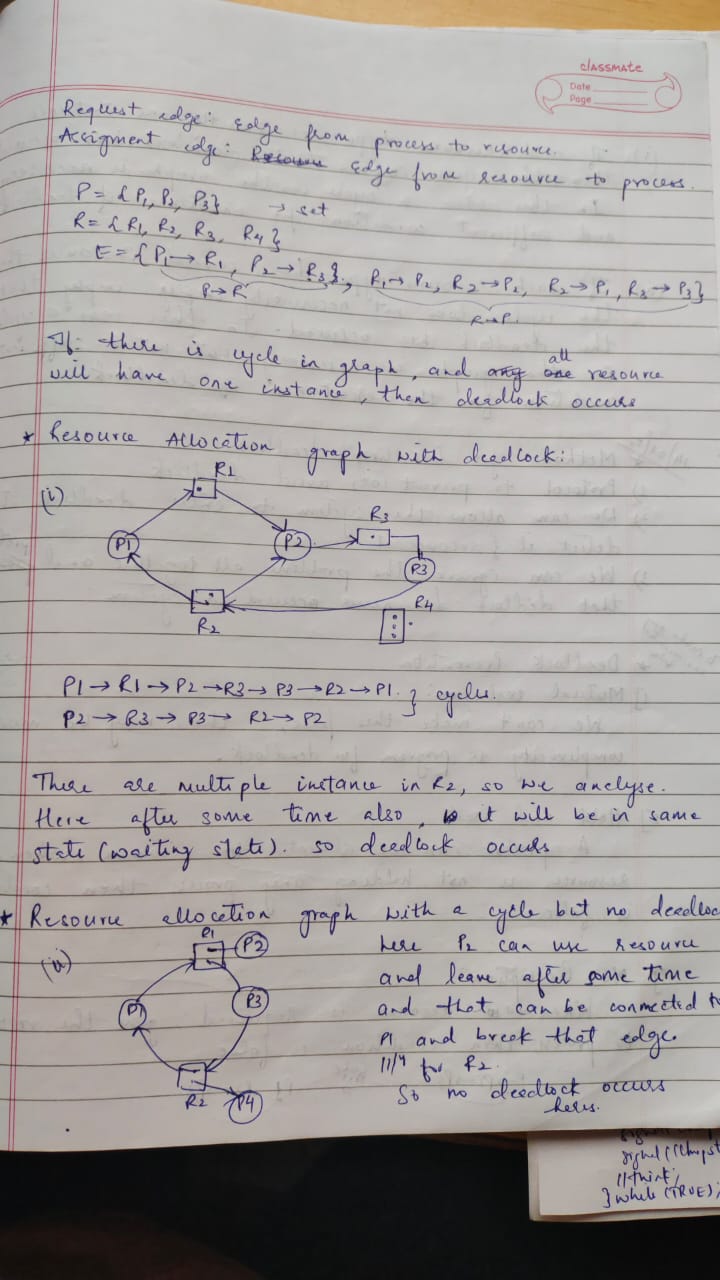 classmate
Date
Page
Request edge: Edge from process to resource.
Assigment edge: Edge from resource to process.
P = { P1, P2, P3} → set
R = { R1, R2, R3, R4 }
E = { P1 → R1, P2 → R3}, R1 → P2, R2 → P2, R2 → P1, R3 → P3}
P → R
R → P
If there is cycle in graph, and all resource
will have one instance, then deadlock occurs
* Resource Allocation graph with deadlock:
(i)
R1
P1
P2
R3
P3
R2
R4
P1 → R1 → P2 → R3 → P3 → R2 → P1. } cycles.
P2 → R3 → P3 → R2 → P2
There are multiple instance in R2, so we analyse.
Here after some time also, it will be in same
state (waiting state). so deadlock occurs
* Resource allocation graph with a cycle but no deadloc
(ii)
R1
P2
P1
P3
R2
P4
here P2 can use resource
and leave after some time
and that can be connected to
P1 and break that edge.
11/4 for R2.
So no deadlock occurs
here.
signal (chopst
//think;
} while (TRUE);